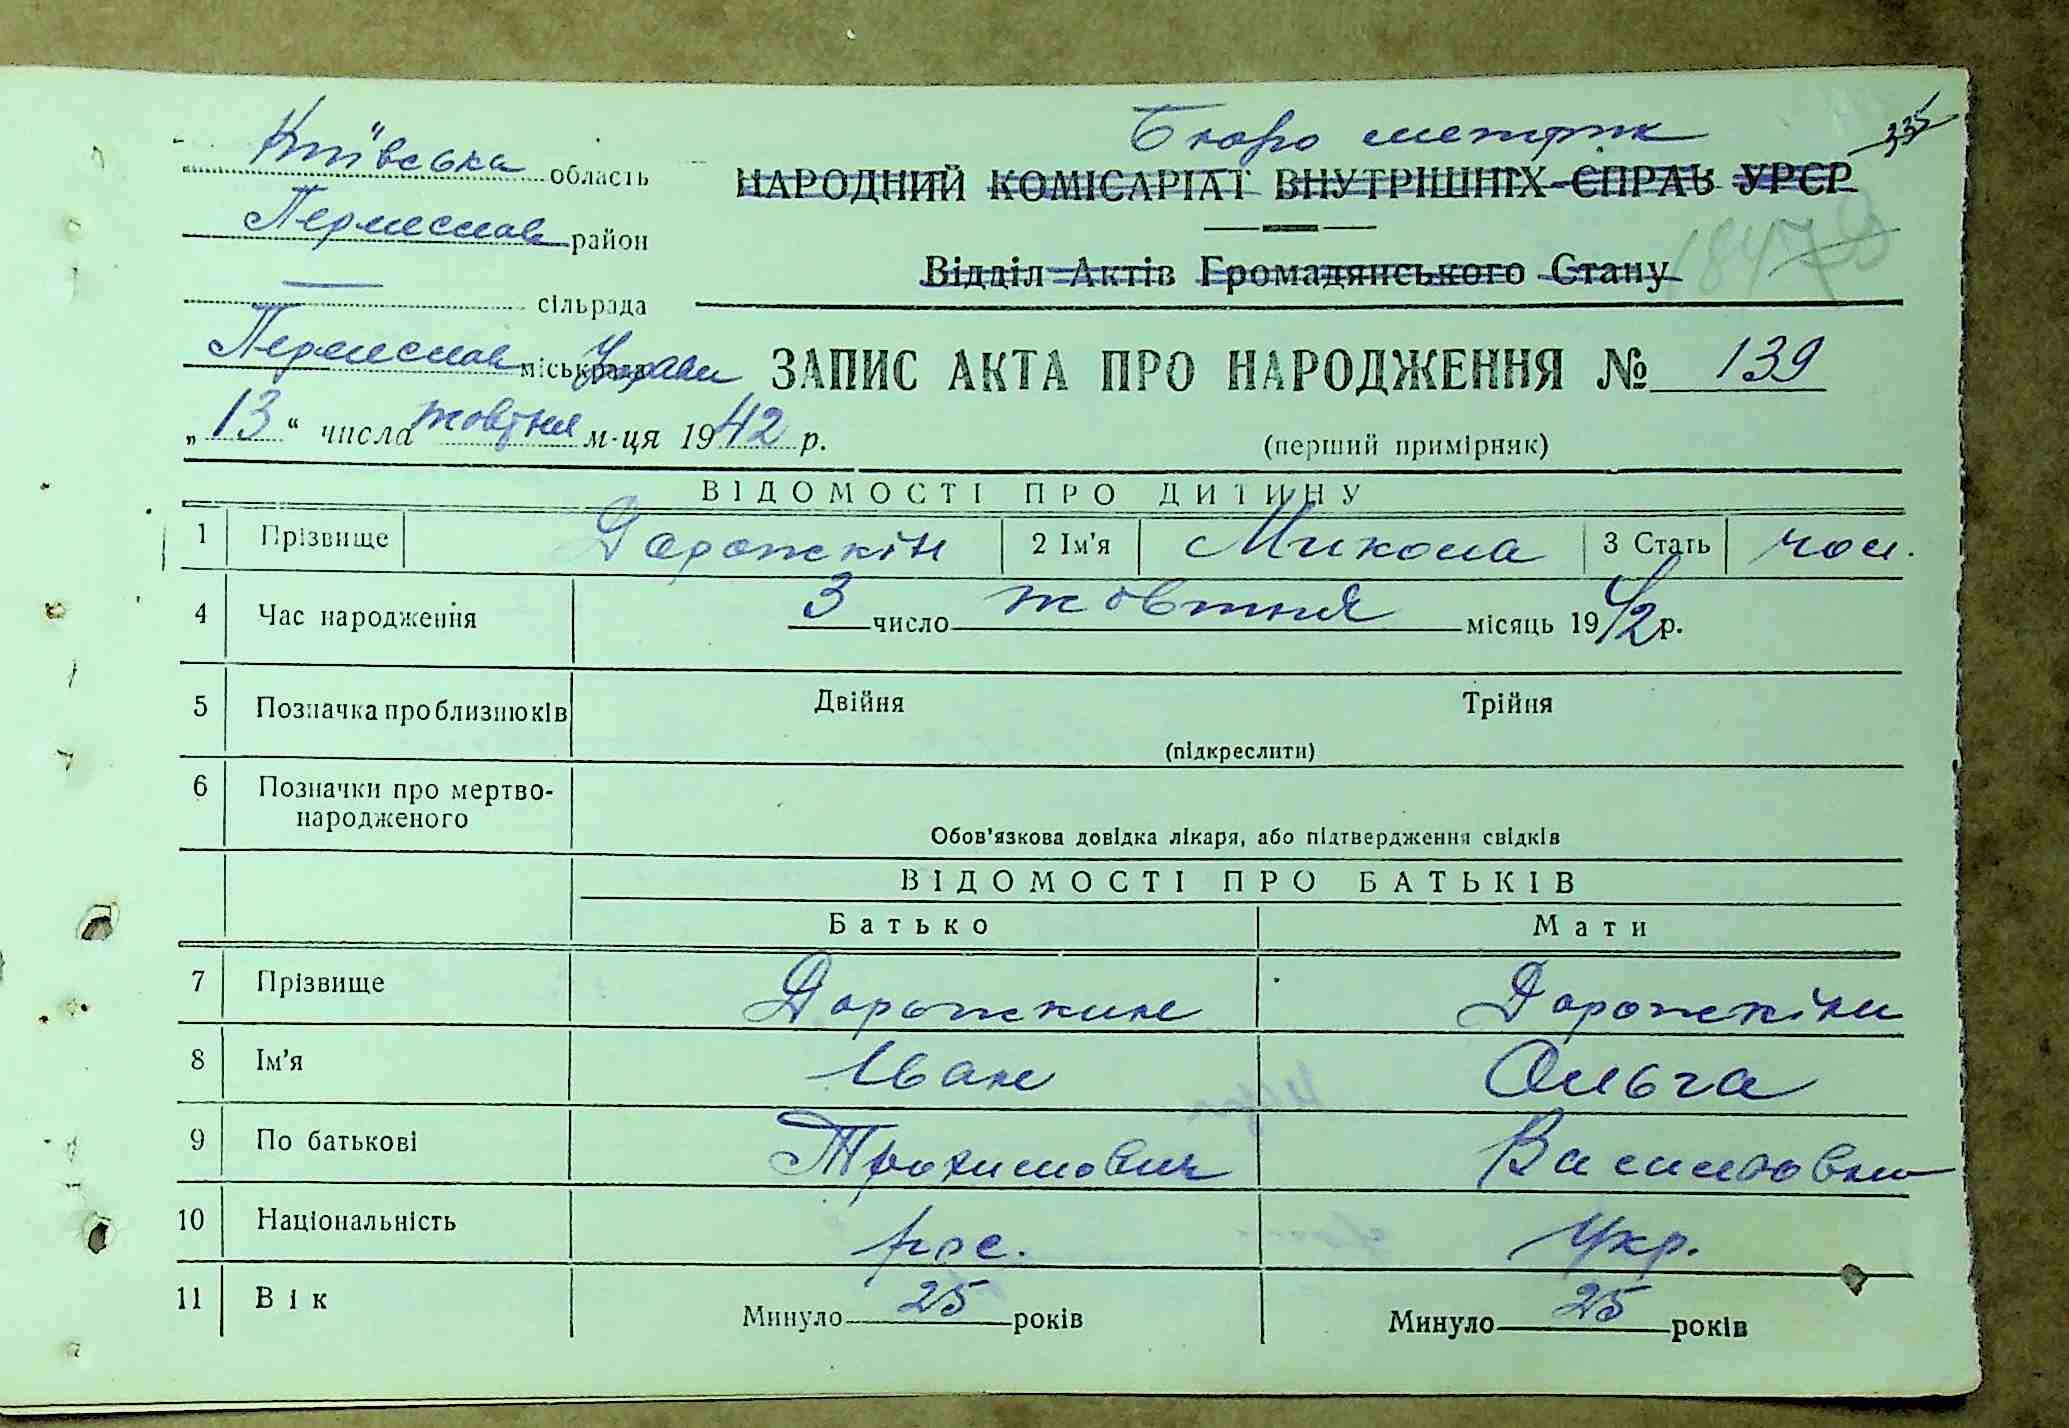 Бюро метрик
Київська область
НАРОДНИЙ КОМІСАРІАТ ВНУТРІШНІХ СПРАВ УРСР
Переяслав район
Відділ Актів Громадянського Стану
1847
сільрада
Переяслав міськрада Управи
ЗАПИС АКТА ПРО НАРОДЖЕННЯ № 139
„13“ числа жовтня м-ця 1942 р.
(перший примірник)
ВІДОМОСТІ ПРО ДИТИНУ
1 Прізвище Дорожкін 2 Ім'я Микола 3 Стать чол.
4 Час народження 3 число жовтня місяць 1942 р.
5 Позначка про близнюків Двійня Трійня
(підкреслити)
6 Позначки про мертво-
народженого
Обов'язкова довідка лікаря, або підтвердження свідків
ВІДОМОСТІ ПРО БАТЬКІВ
Батько Мати
7 Прізвище Дорожкин Дорожкіна
8 Ім'я Іван Ольга
9 По батькові Трохимович Василовна
10 Національність рос. Укр.
11 Вік Минуло 25 років Минуло 25 років